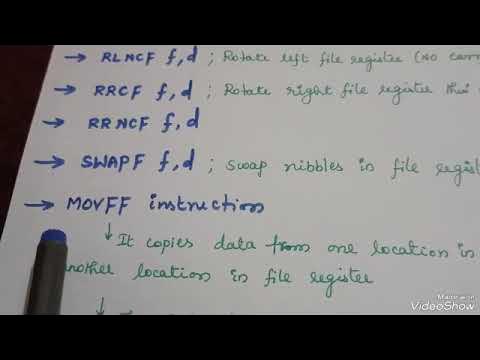 → RLNCF f,d ; Rotate left file register (NO
→ RRCF f,d ; Rotate right file register
→ RRNCF f,d
→ SWAPF f,d ; Swap nibbles in file
→ MOVFF instruction
↓ It copies data from one location in
another location in file register
↓
Made with
VideoShow